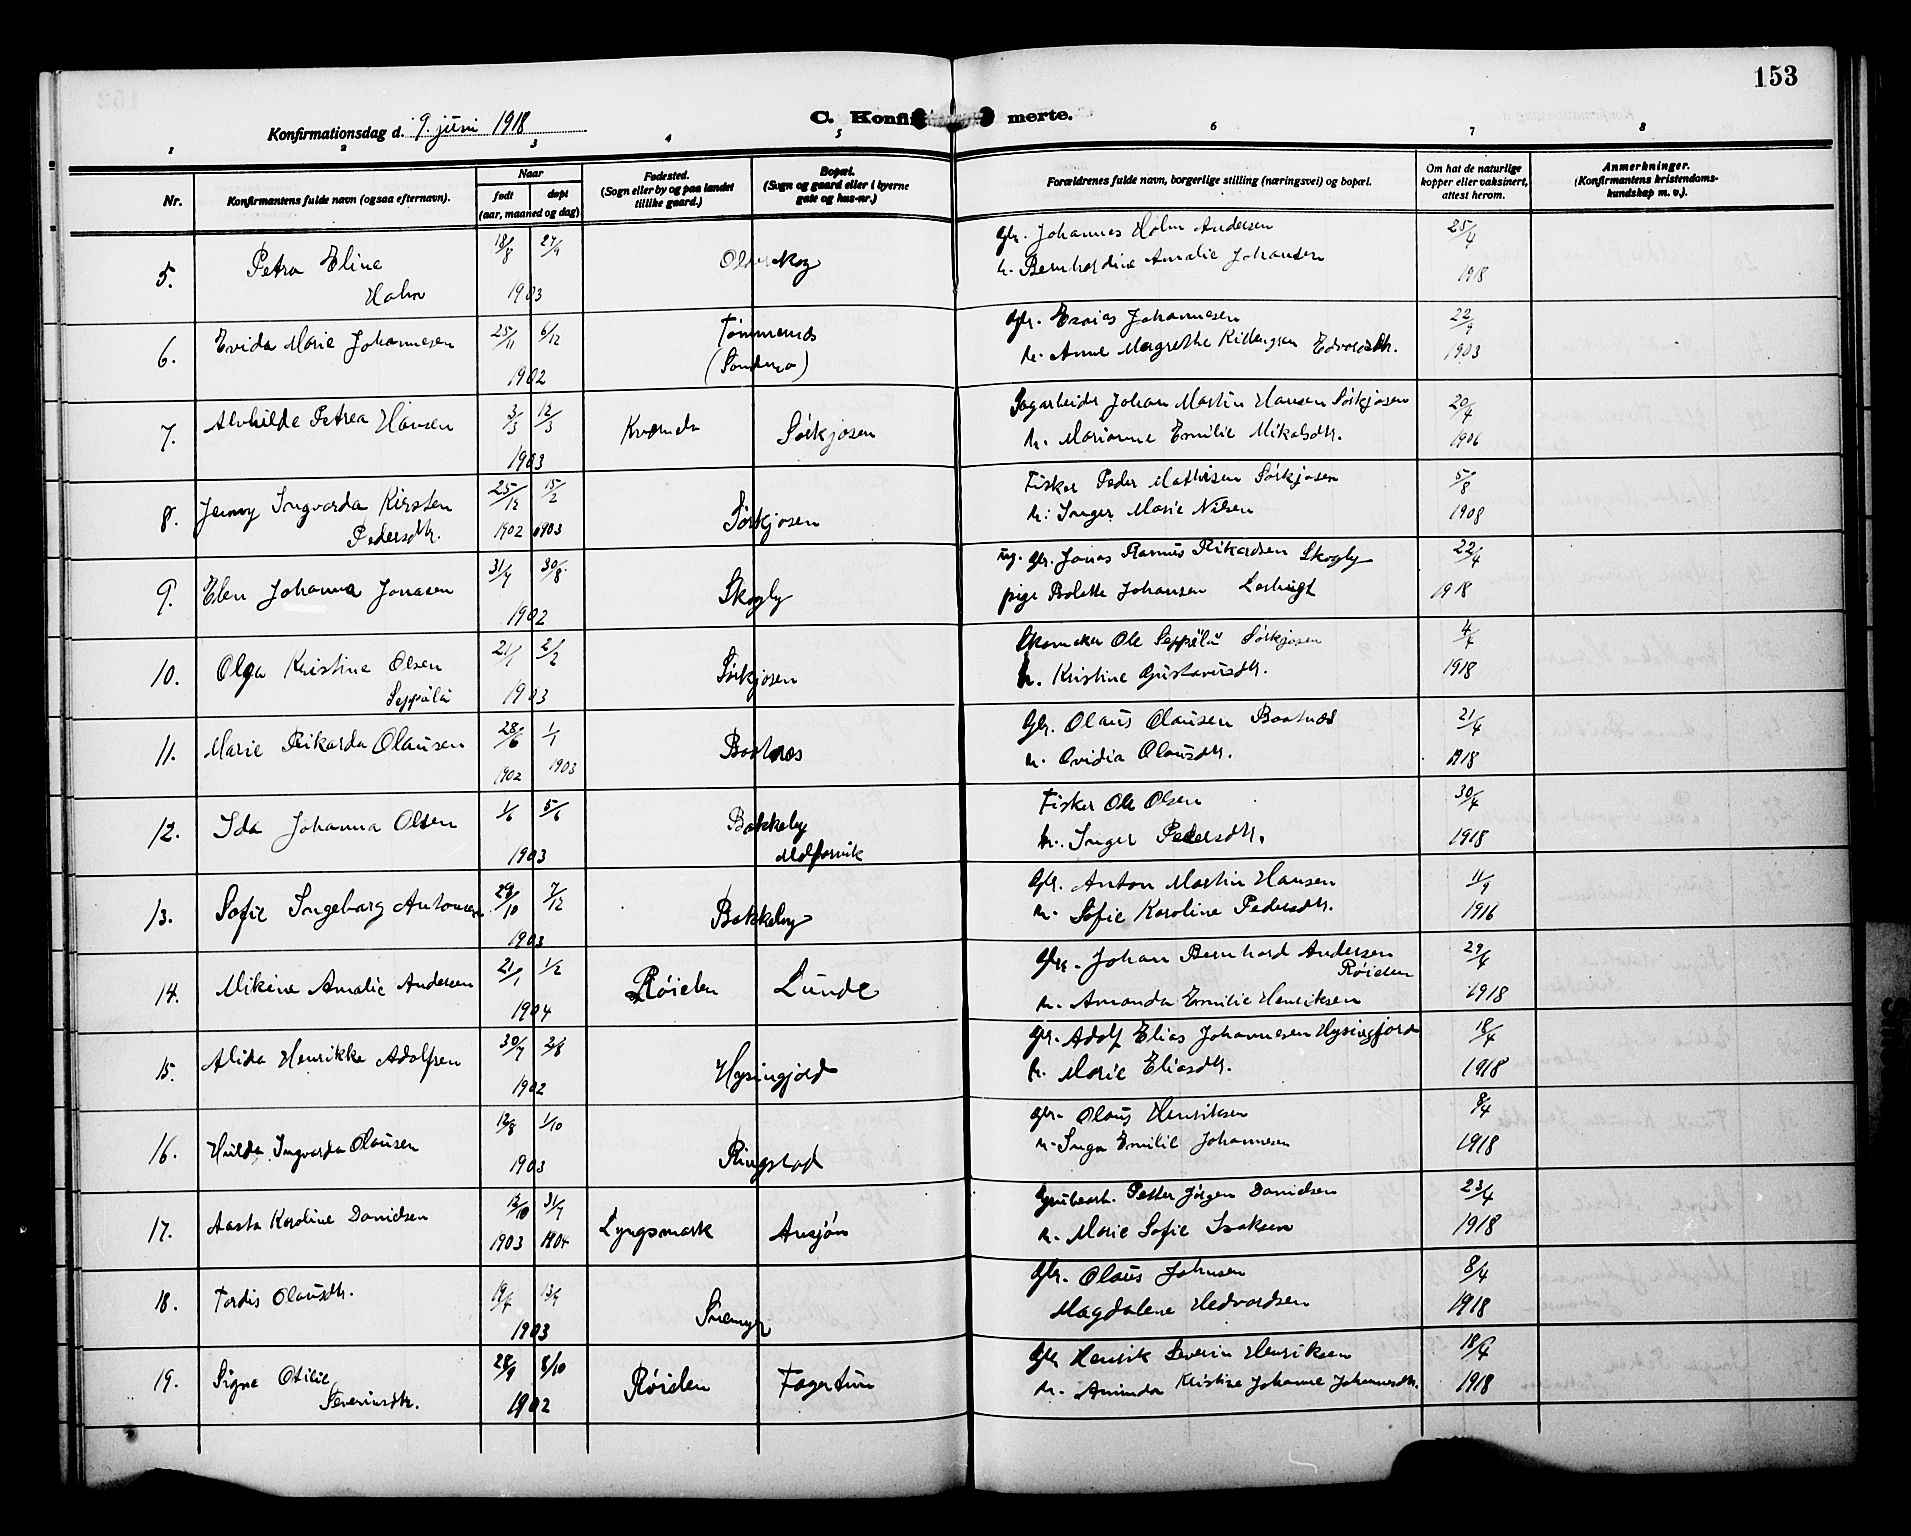 153
C. Konfirmerte.
Konfirmationsdag d. 9. juni 1918
1 2 3 4 5 6 7 8
Nr.
Konfirmantens fulde navn (ogsaa efternavn).
Naar
født døpt
(aar, maaned og dag)
Fødested.
(Sogn eller by og paa landet
tillike gaard.)
Bopæl.
(Sogn og gaard eller i byerne
gate og hus-nr.)
Forældrenes fulde navn, borgerlige stilling (næringsvei) og bopæl.
Om hat de naturlige
kopper eller vaksinert,
attest herom.
Anmerkninger.
(Konfirmantens kristendoms-
kundskap m. v.).
5. Petra Eline 18/8 27/9 Gbr. Johannes Holm Andersen 25/4
Holm 1903 h. Bernhardine Amalie Johansen 1918
6. Evida Marie Johannesen 25/11 6/12 Gbr. Esaias Johannesen 22/9
1902 h. Anne Margrethe Edvardsdtr. 1903
7. Alvhilde Petrea Hansen 3/3 12/3 Kvænda Sørkjosen Johan Martin Hansen Sørkjosen 20/4
1903 h. Marianne Emilie Mikalsdtr. 1906
8. Jenny Ingvarda Kirsten 25/12 15/2 Sørkjosen Fisker Peder Mathisen Sørkjosen 5/8
Pedersdtr. 1902 1903 h: Inger Marie Nilsen 1908
9. Elen Johanna Jonasen 31/7 30/8 Skogly ug. gbr. Jonas Rasmus Rikardsen Skogly 22/4
1902 pige Bolette Johansen 1918
10. Olga Kristine Olsen 21/1 2/2 Sørkjosen Skomaker Ole Seppälä Sørkjosen 4/4
Seppälä 1903 h. Kristine Gustavusdtr. 1918
11. Marie Rikarda Olausen 28/6 1/1 Baatnes Gbr. Olaus Olausen Baatnes 21/4
1902 1903 h. Ovidia Olausdtr. 1918
12. Ida Johanna Olsen 1/6 5/6 Bakkeby Fisker Ole Olsen 30/4
1903 h. Inger Pedersdtr. 1918
13. Sofie Ingeborg Antonsen 29/10 7/12 Bakkeby Gbr. Anton Martin Hansen 11/9
1903 h. Sofie Karoline Pedersdtr. 1916
14. Mikine Amalie Andersen 21/1 1/2 Røielen Lunde Gbr. Johan Bernhard Andersen 29/4
Røielen
1904 h. Amanda Emilie Henriksen 1918
15. Alida Henrikke Adolfsen 30/7 2/8 Hysingjord Gbr. Adolf Elias Johannesen Hysingjord 18/4
1902 h. Marie Eliasdtr. 1918
16. Hulda Ingvarda Olausen 12/8 1/10 Ringstad Gbr. Olaus Henriksen 8/4
1903 h. Inga Emilie Johannesen 1918
17. Aasta Karoline Danidsen 12/10 31/7 Lyngsmark Ansjön Grubearb. Petter Jörgen Danidsen 23/4
1903 1904 h. Marie Sofie Isaksen 1918
18. Tordis Olausdtr. 19/7 13/9 Gbr. Olaus Johnsen 8/4
1903 Magdalene Hedvardsen 1918
19. Signe Otilie 28/9 8/10 Røielen Fagertun Gbr Henrik Severin Henriksen 18/4
Severinsdtr. 1902 h. Aminda Kristine Johanne Johannesdtr. 1918